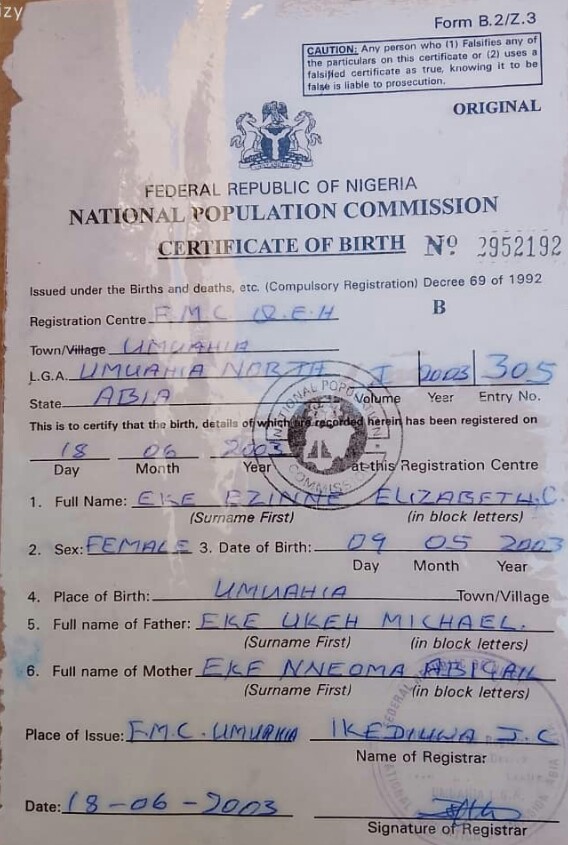 izy
Form B.2/Z.3
CAUTION: Any person who (1) Falsifies any of
the particulars on this certificate or (2) uses a
falsified certificate as true, knowing it to be
false is liable to prosecution.
ORIGINAL
FEDERAL REPUBLIC OF NIGERIA
NATIONAL POPULATION COMMISSION
CERTIFICATE OF BIRTH Nº 2952192
Issued under the Births and deaths, etc. (Compulsory Registration) Decree 69 of 1992
B
Registration Centre F.M.C Q.E.H
Town/Village UMUAHIA
L.G.A. UMUAHIA NORTH I 2003 305
State ABIA Volume Year Entry No.
This is to certify that the birth, details of which are recorded herein has been registered on
18 06 2003
Day Month Year at this Registration Centre
NATIONAL POPULATION COMMISSION
1. Full Name: EKE EZINNE ELIZABETH.C.
(Surname First) (in block letters)
2. Sex: FEMALE 3. Date of Birth: 09 05 2003
Day Month Year
4. Place of Birth: UMUAHIA Town/Village
5. Full name of Father: EKE UKEH MICHAEL.
(Surname First) (in block letters)
6. Full name of Mother EKE NNEOMA ABIGAIL
(Surname First) (in block letters)
Place of Issue: F.M.C. UMUAHIA IKEDIUWA J.C
Name of Registrar
Date: 18-06-2003
Signature of Registrar